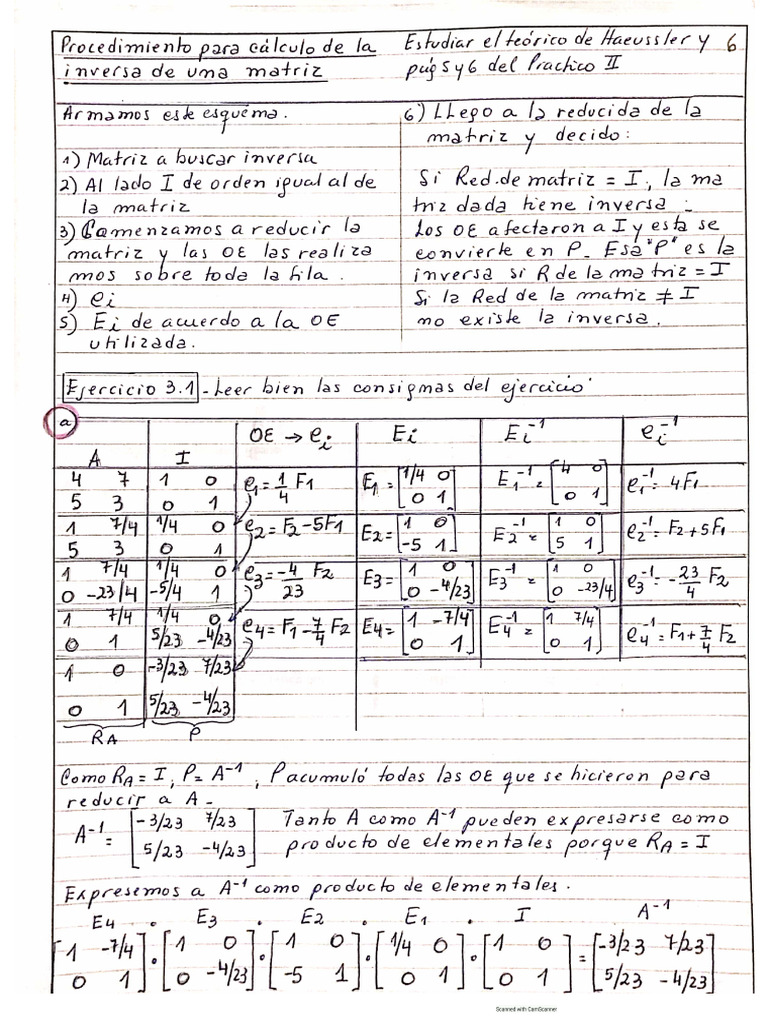 Procedimiento para cálculo de la
inversa de una matriz
Estudiar el teórico de Haeussler y
pág 5 y 6 del Practico II
6
Armamos este esquema.
1) Matriz a buscar inversa
2) Al lado I de orden igual al de
la matriz
3) Comenzamos a reducir la
matriz y las OE las realiza
mos sobre toda la fila.
4) ei
5) Ei de acuerdo a la OE
utilizada.
6) Llego a la reducida de la
matriz y decido:
Si Red. de matriz = I, la ma
triz dada tiene inversa.
Los OE afectaron a I y esta se
convierte en P. Esa "P" es la
inversa si R de la matriz = I
Si la Red de la matriz ≠ I
no existe la inversa.
Ejercicio 3.1 - Leer bien las consignas del ejercicio
a
A I OE → ei Ei Ei⁻¹ ei⁻¹
4 7 1 0 e1 = 1/4 F1 E1 = [1/4 0 E1⁻¹ = [4 0 e1⁻¹ = 4F1
5 3 0 1 0 1] 0 1]
1 7/4 1/4 0 e2 = F2 - 5F1 E2 = [1 0 E2⁻¹ = [1 0 e2⁻¹ = F2 + 5F1
5 3 0 1 -5 1] 5 1]
1 7/4 1/4 0 e3 = -4/23 F2 E3 = [1 0 E3⁻¹ = [1 0 e3⁻¹ = -23/4 F2
0 -23/4 -5/4 1 0 -4/23] 0 -23/4]
1 7/4 1/4 0 e4 = F1 - 7/4 F2 E4 = [1 -7/4 E4⁻¹ = [1 7/4 e4⁻¹ = F1 + 7/4 F2
0 1 5/23 -4/23 0 1] 0 1]
1 0 -3/23 7/23
0 1 5/23 -4/23
RA P
Como RA = I, P = A⁻¹, P acumuló todas las OE que se hicieron para
reducir a A.
A⁻¹ = [-3/23 7/23
5/23 -4/23]
Tanto A como A⁻¹ pueden expresarse como
producto de elementales porque RA = I
Expresemos a A⁻¹ como producto de elementales.
E4 . E3 . E2 . E1 . I A⁻¹
[1 -7/4 . [1 0 . [1 0 . [1/4 0 . [1 0 = [-3/23 7/23
0 1] 0 -4/23] -5 1] 0 1] 0 1] 5/23 -4/23]
Scanned with CamScanner